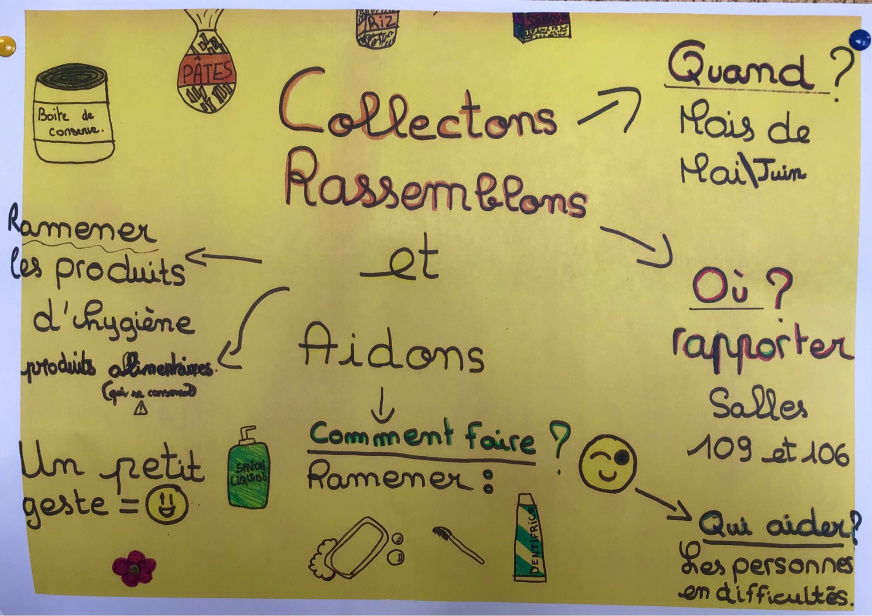 RIZ
PÂTES
Boite de
conserve.
Collectons
Rassemblons
et
Aidons
Quand ?
Mois de
Mai\Juin
Où ?
rapporter
Salles
109 et 106
Qui aider?
Les personnes
en difficultés.
Ramener
les produits
d'hygiène
produits alimentaires.
(qui se conservent)
Un petit
geste =
Comment faire ?
Ramener :
SAVON
LIQUIDE
DENTIFRICE